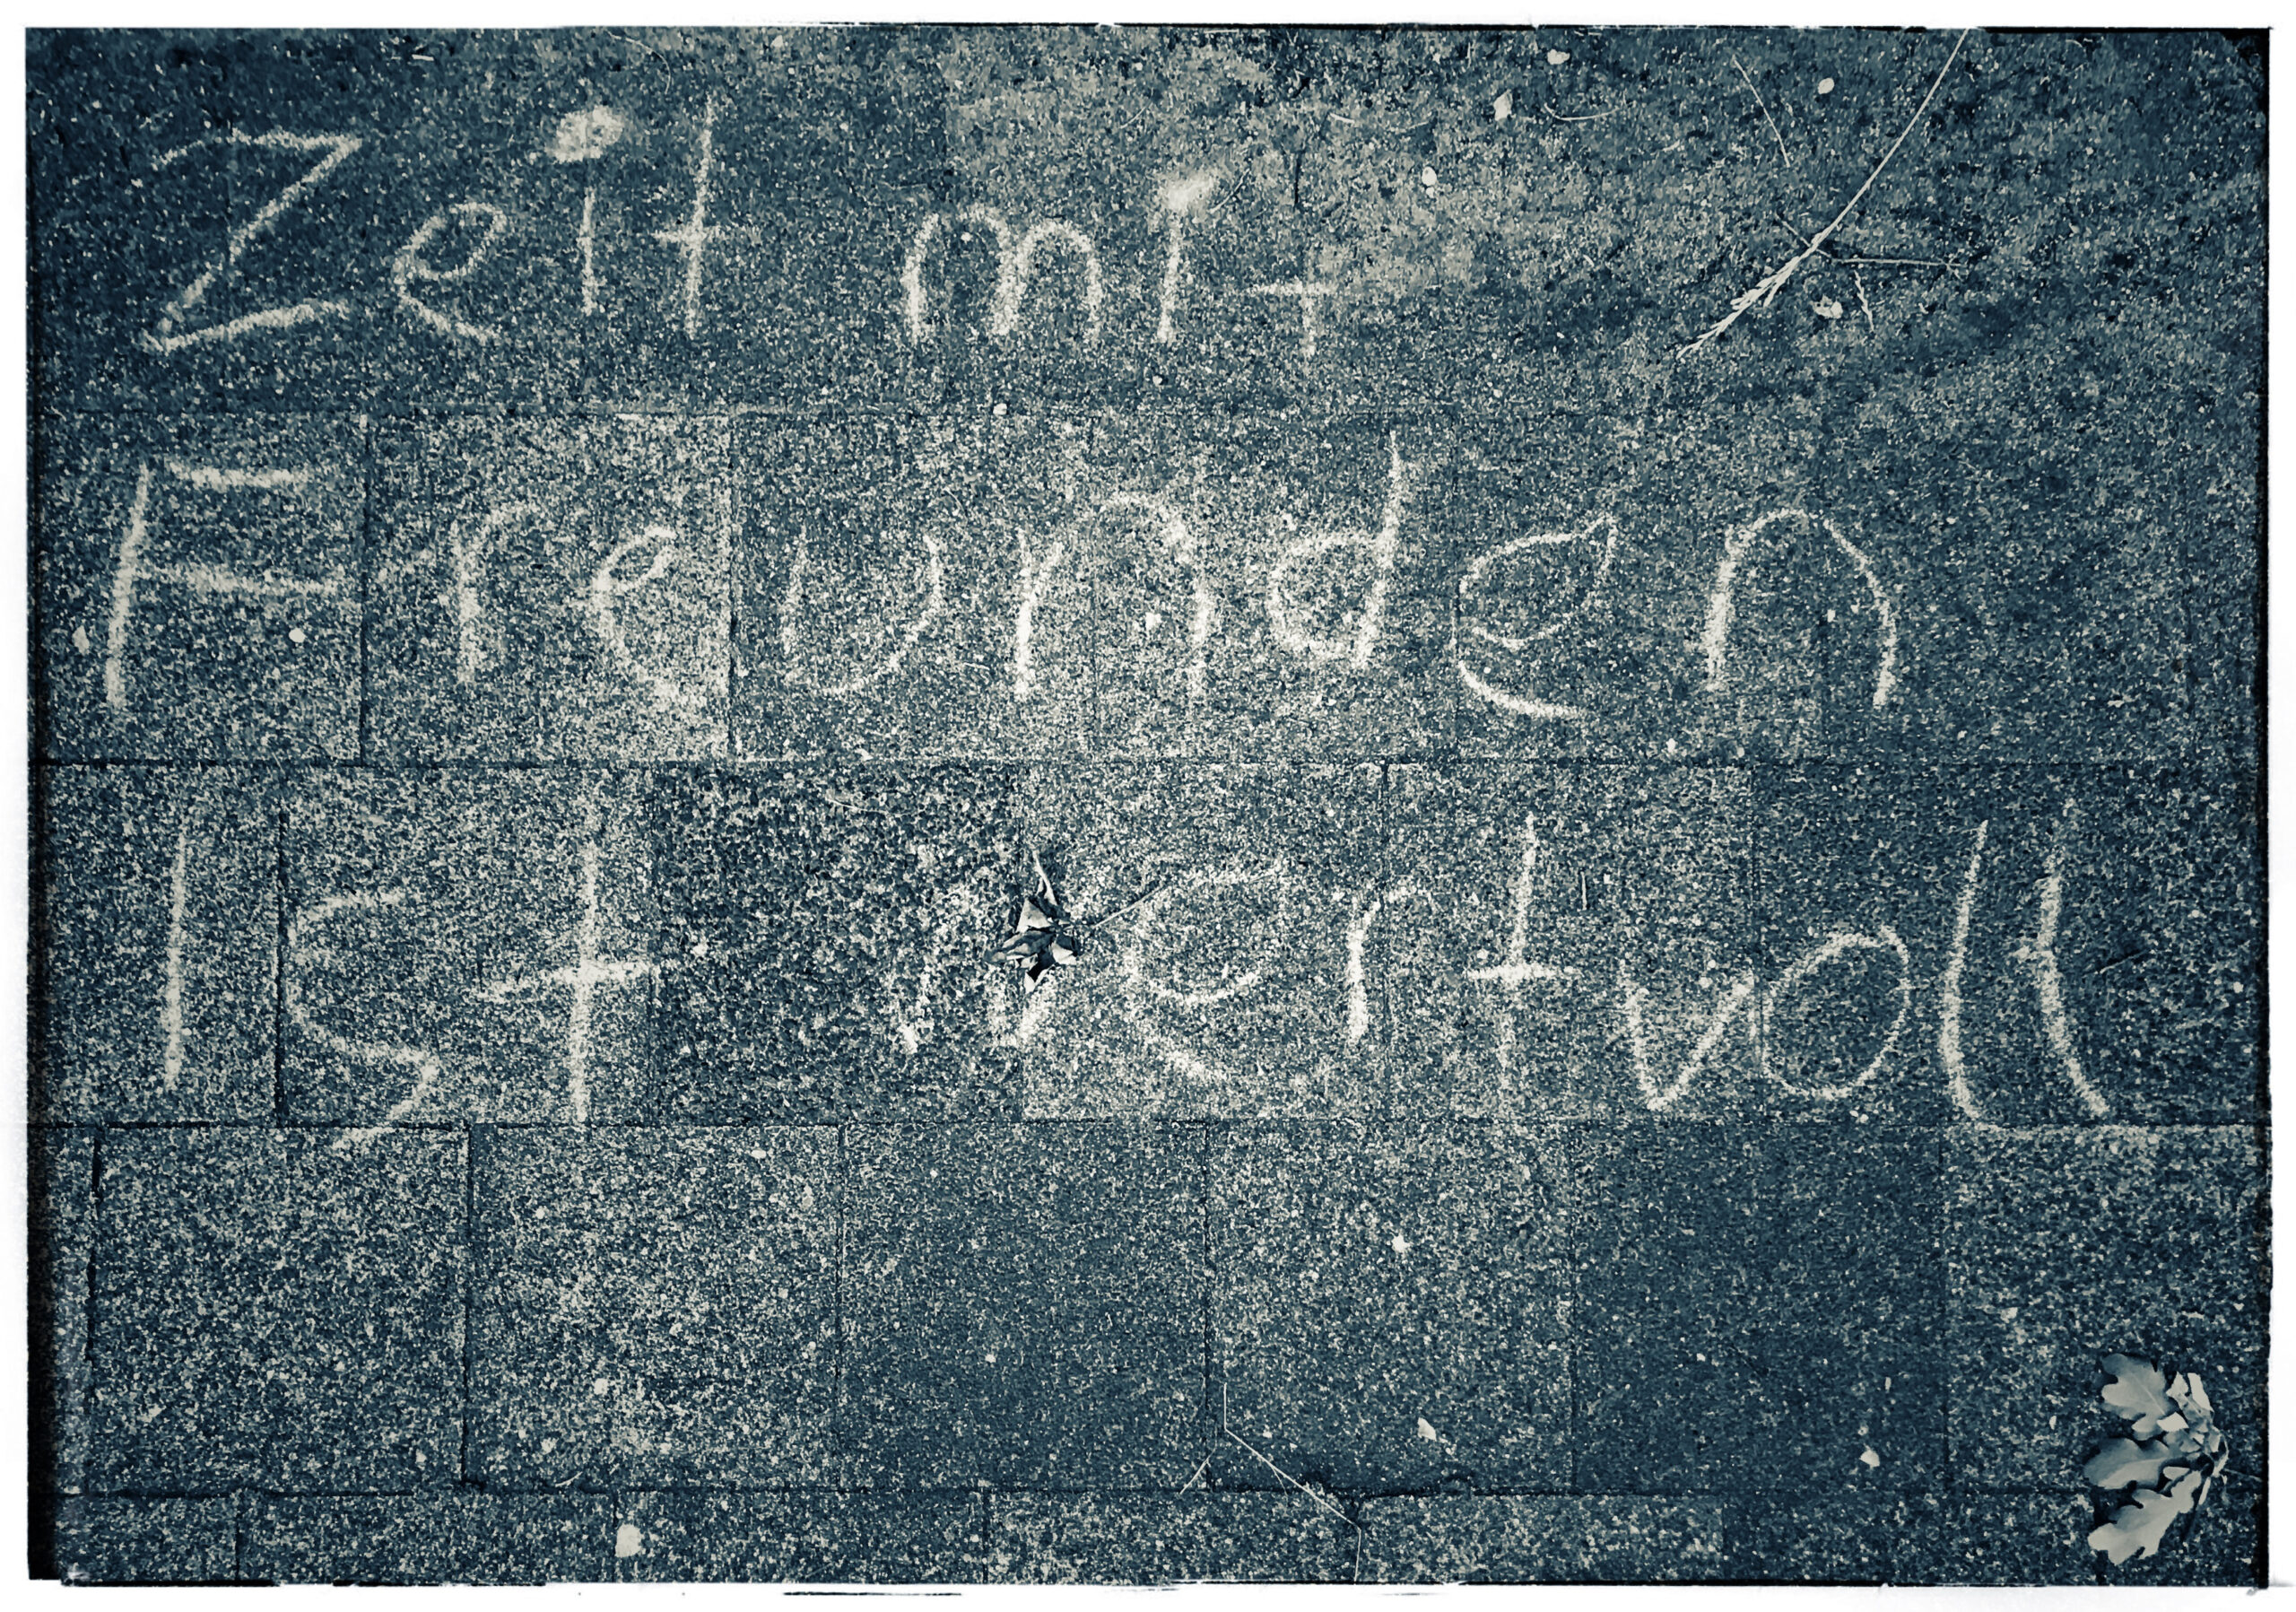 Zeit mit
Freunden
Ist wertvoll